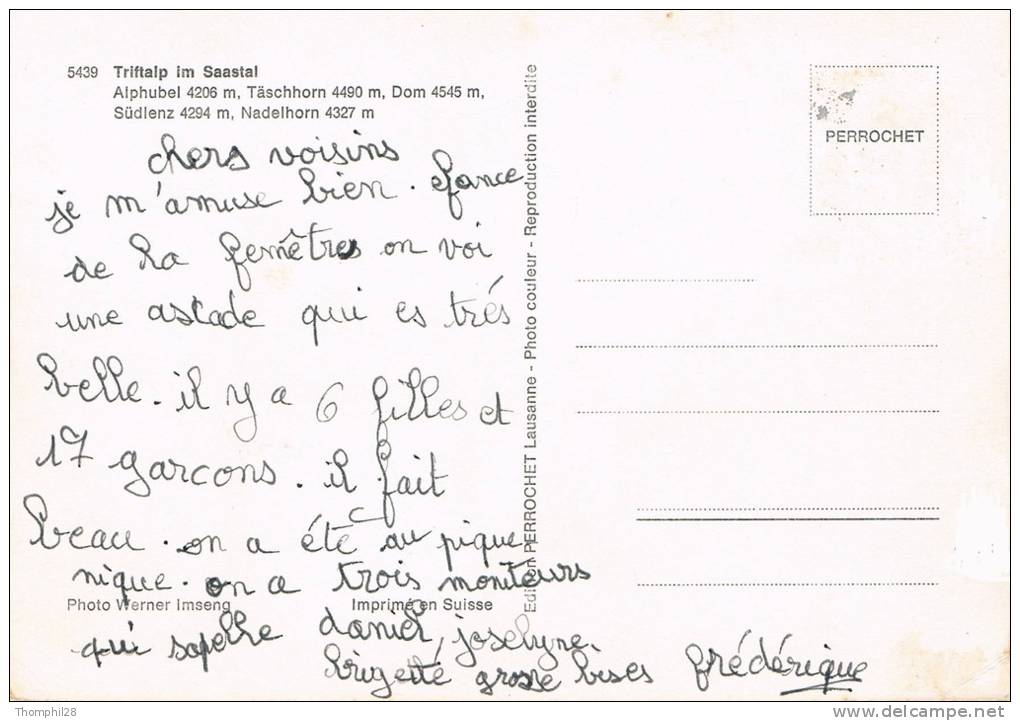 5439 Triftalp im Saastal
Alphubel 4206 m, Täschhorn 4490 m, Dom 4545 m,
Südlenz 4294 m, Nadelhorn 4327 m
chers voisins
je m'amuse bien. efance
de la femêtres on voi
une ascade qui es trés
belle. il y a 6 filles et
17 garcons. il fait
beau. on a été au pique
nique. on a trois moniteurs
Photo Werner Imseng
Imprimé en Suisse
qui sapelle daniel, joselyne.
brigeité grosse bises frédérique
Edition PERROCHET Lausanne - Photo couleur - Reproduction interdite
PERROCHET
Thomphil28
www.delcampe.net